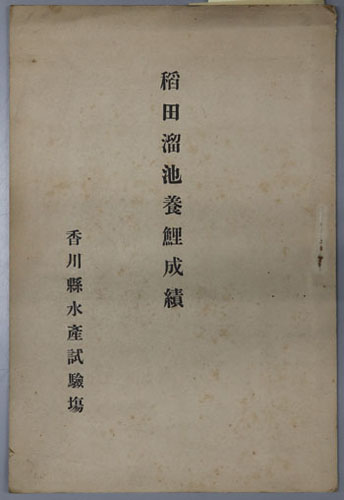 稻田溜池養鯉成績
香川縣水產試驗塲